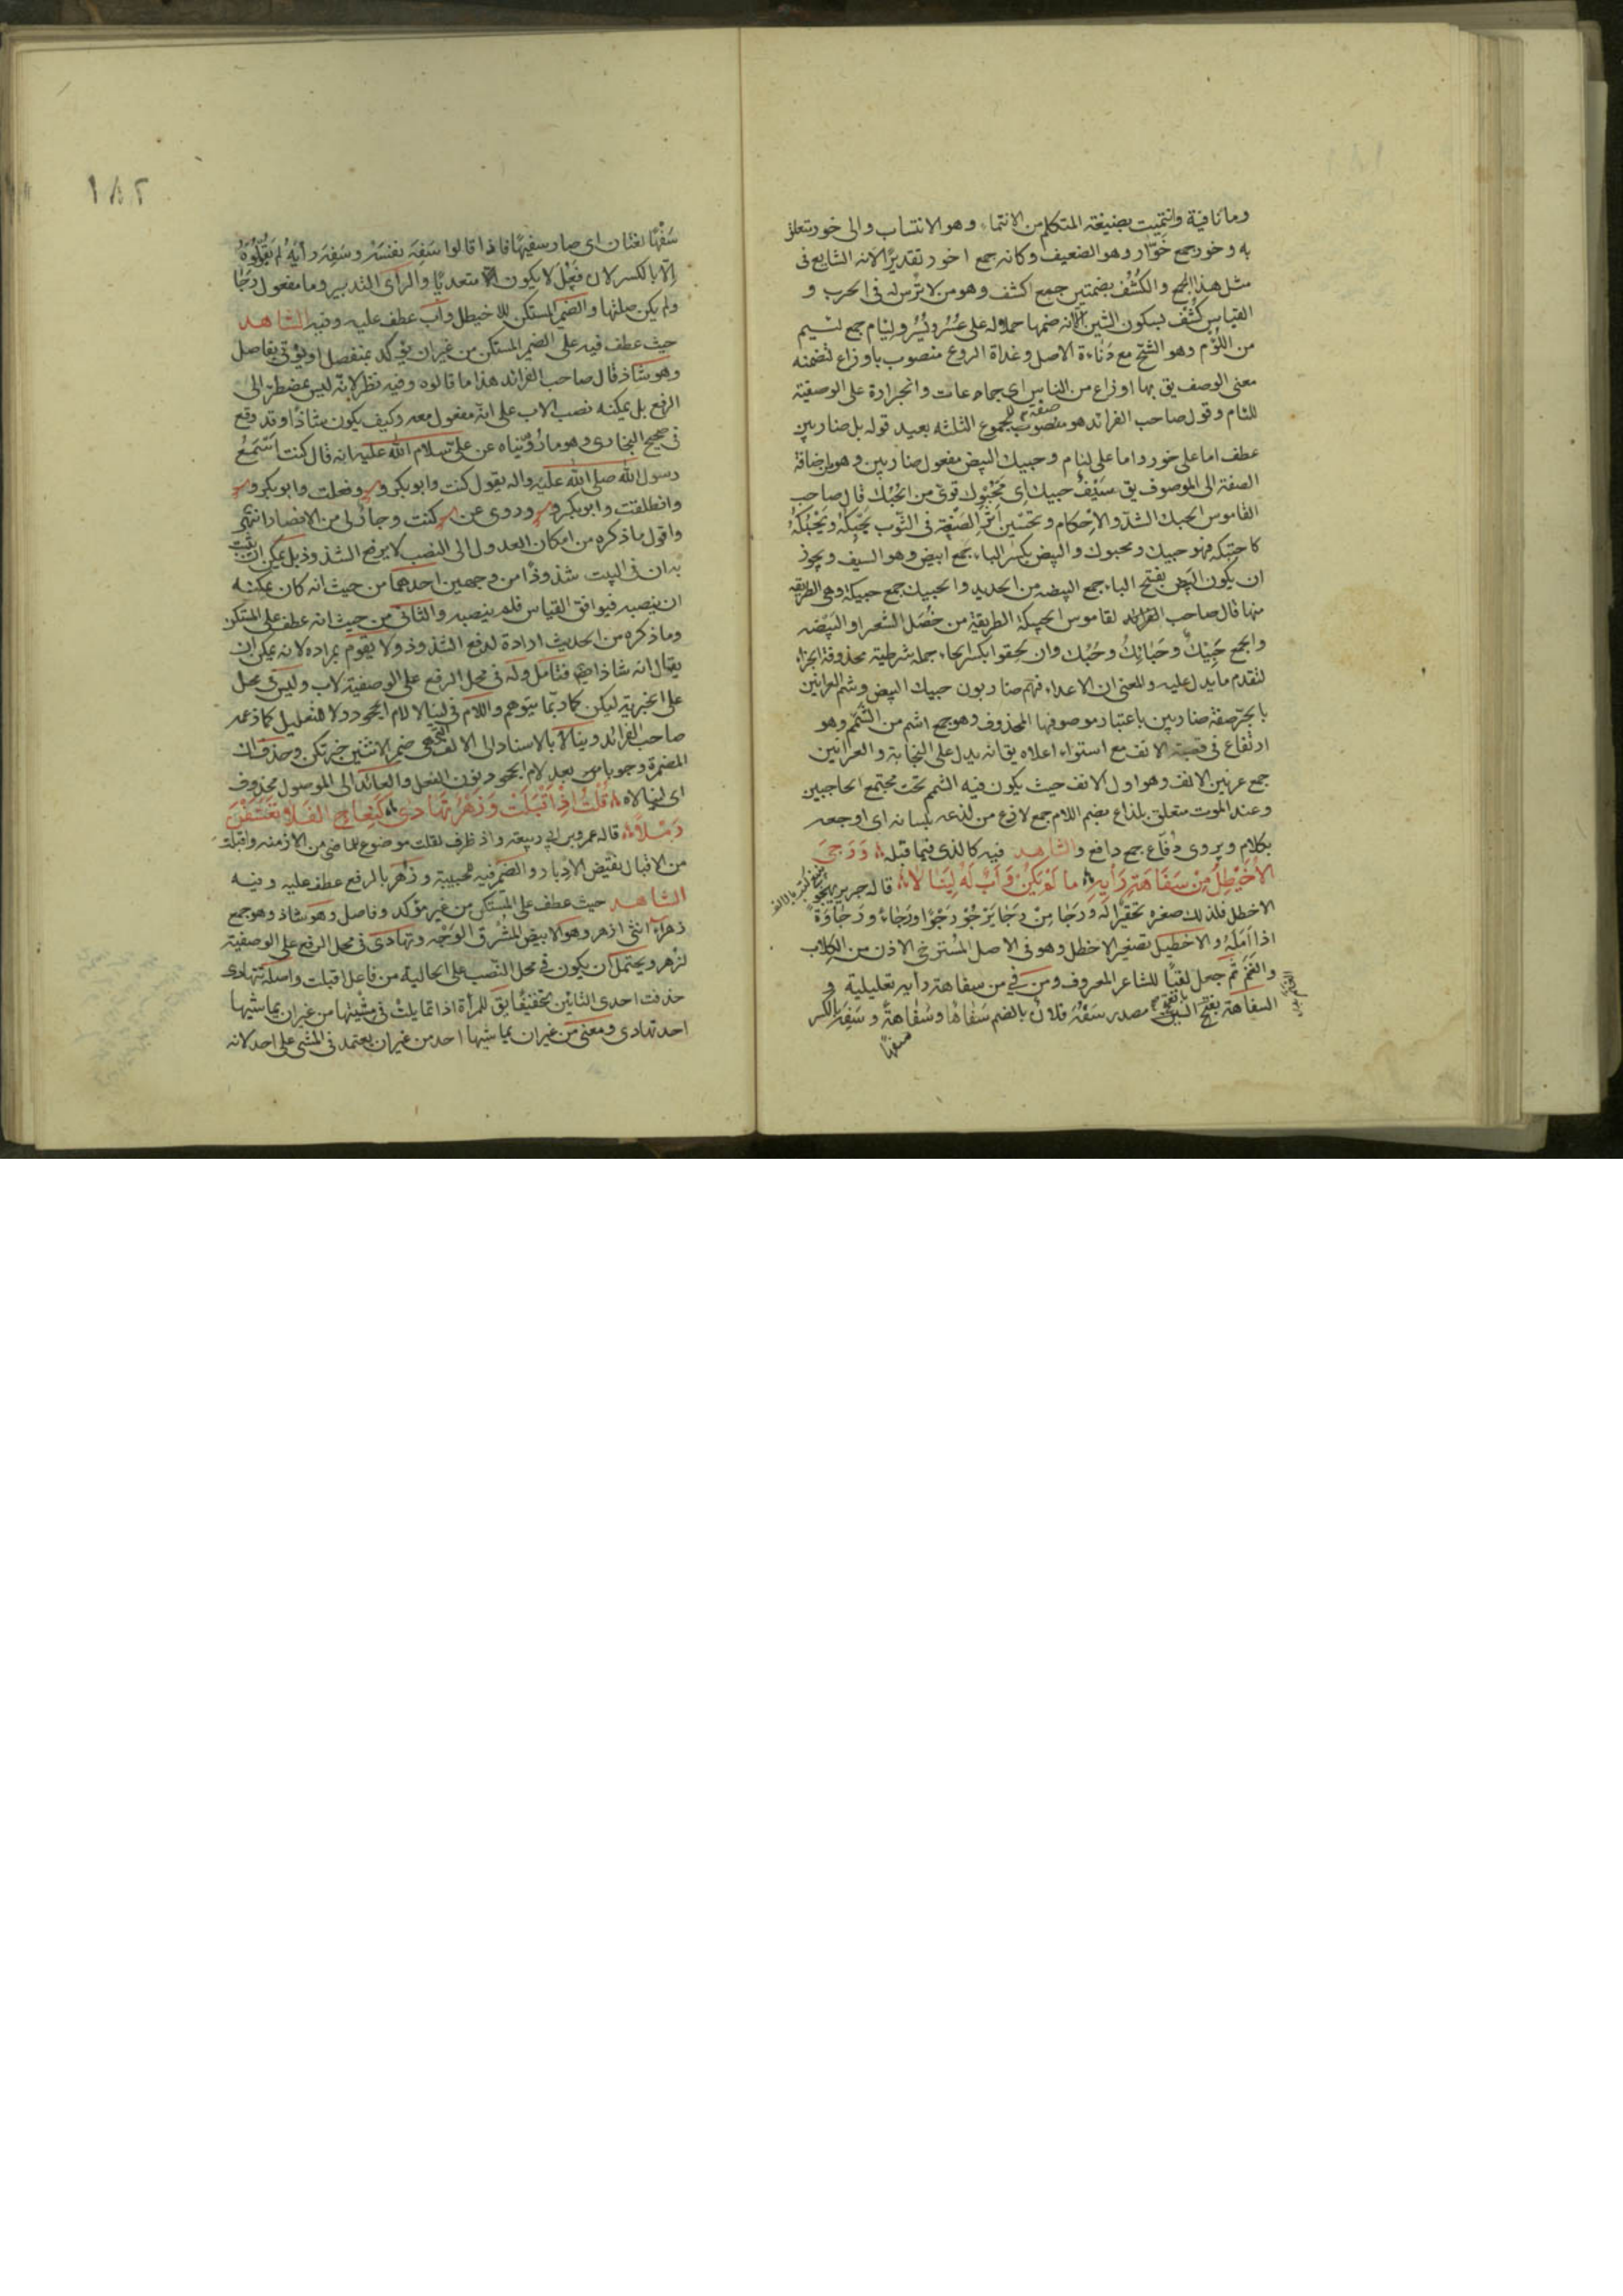 وما نافية وانتميت بصيغة المتكلم من الانتماء وهو الانتساب والى خور متعلق
به وخور جمع خوّار وهو الضعيف وكانه جمع اخور تقديرًا لانه الشايع فى
مثل هذا الجمع والكُشُف بضمتين جمع اكشف وهو من لا ترس له فى الحرب و
القياس كُشْف بسكون الشين الا انه ضمها حملا له على عُسُر ويُسُر ولئام جمع لئيم
من اللؤم وهو الشح مع دناءة الاصل وغداة الروع منصوب باوزاع لتضمنه
معنى الوصف يق بها اوزاع من الناس اى جماعات وانجراره على الوصفية
للئام وقول صاحب الفرائد هو منصوب صفة لمجموع الثلثة بعيد قوله بل ضاربين
عطف اما على خور واما على لئام وحبيك البيض مفعول ضاربين وهو باضافة
الصفة الى الموصوف يق سَيْفٌ حبيك اى مَحْبُوك قوىّ من الحَبْك قال صاحب
القاموس الحبك الشدّ والاِحْكام وتحسين اَثَر الصَنْعة فى الثَوب يَحْبِكُهُ ويَحْبُكُهُ
كاحتبكه فهو حبيك ومحبوك والبيض بكسر الباء جمع ابيض وهو السيف ويجوز
ان يكون البيض بفتح الباء جمع البيضه من الحديد والحبيك جمع حبيكة وهى الطريقه
منها قال صاحب القاموس الحبيكة الطريقة من خُصَل الشعر او البَيْضه
والجمع حَبِيْكٌ وحَبَائِكُ وحُبُك وان لحقوا بكسر الحاء جملة شرطية محذوفة الجزاء
لتقدم ما يدل عليه والمعنى ان الاعداء فهم ضاربون حبيك البيض وشم العرانين
بالجرّ صفة ضاربين باعتبار موصوفها المحذوف وهو جمع اشم من الشَمَم وهو
ارتفاع فى قصبة الانف مع استواء اعلاه يق انه يدل على النجابة والعرانين
جمع عرنين الانف وهو اول الانف حيث يكون فيه الشمم تحت مجتمع الحاجبين
وعند الموت متعلق بلذاع بضم اللام جمع لاذع من لذعه بلسانه اى اوجعه
بكلام ويروى دُفّاع جمع دافع والشاهد فيه كالذى فيما قبله وَرَجىَ
الاُخَيْطِلُ مِنْ سَفَاهَةِ رَأيِهِ ما لَمْ يَكُنْ وَاَبٌ لَهُ لِيَنَالاَ قاله جرير يهجو
الاخطل فلذلك صغره تحقيرًا له ورَجا مِنْ رَجَا يَرْجُوْ رَجْوًا ورَجاءً ورَجاوَةً
اذا اَمَلَهُ والاخَيْطِل تصغير الاخطل وهو فى الاصل المُسْترخى الاذن من الكلاب
والغَنَم ثمّ جعل لقبًا للشاعر المعروف ومن فى من سفاهة رأيه تعليلية و
السفاهة بفتح السين مصدر سَفُهَ فلان بالضم سَفاهًا وسَفاهةً وسَفِهَ بالكسر
سفهًا
١٨٢
سَفَهًا لغتان اى صار سفيهًا فاذا قالوا سَفِهَ نفسَهُ وسَفِهَ رأيَهُ لم يَقُوْلُوهُ
اِلّا بالكسر لان فَعُلَ لا يكون متعديًا والرأى التدبير وما مفعول رَجَا
ولم يكن صلتها والضمير المستكن للاخيطل وأب عطف عليه وفيه الشاهد
حيث عطف فيه على الضمير المستكن من غير ان يؤكد بمنفصل او يؤتى بفاصل
وهو شاذ قال صاحب الفرائد هذا ما قالوه وفيه نظر لانّه ليس بمضطر الى
الرفع بل يمكنه نصب الاب على انه مفعول معه وكيف يكون شاذًا وقد وقع
فى صحيح البخارى وهو ما رُوّيناه عن على سلام الله عليه انه قال كنت اَسْمَعُ
رسول الله صلى الله عليه واله يقول كنت وابوبكر و وفعلت وابوبكر و
وانطلقت وابوبكر و وروى عن كنت وجارٌ لى من الانصار انتهى
واقول ما ذكره من امكان العدول الى النصب لا يرفع الشذوذ بل يمكن ان يثبت
به ان فى البيت شذوذًا من وجهين احدهما من حيث انه كان يمكنه
ان ينصبه فيوافق القياس فلم ينصبه والثانى من حيث انه عطف على المستكن
وما ذكره من الحديث ارادة لدفع الشذوذ ولا يقوم بمراده لانه يمكن ان
يقال انه شاذ ايضا فتامل وله فى محل الرفع على الوصفية لاب وليس فى محل
على الخبرية ليكن كما ربّما يتوهم واللام فى لينالا لام الجحود ولا للتعليل كما زعمه
صاحب الفرائد وينالا بالاسناد الى الالف التى هى ضمير الاثنين خبر تكن وحذف ان
المضمرة وجوبا من بعد لام الجحود نون الفعل والعائد الى الموصول محذوف
اى لينالاه قُلْتُ اِذْ اَقْبَلَتْ وَزُهْرٌ تَهَادى كَنِعاجِ الفَلا تَعَسَّفْنَ
رَمْلاً قاله عمر وبن ابى ربيعة واذ ظرف لقلت موضوع للماضى من الازمنه واقبلت
من الاقبال نقيض الادبار والضمير فيه لمحبيبة وزُهر بالرفع عطف عليه وفيه
الشاهد حيث عطف على المُستكن من غير مؤكد وفاصل وهو شاذ وهو جمع
زهراء انثى ازهر وهو الابيض المُشْرِق الوَجْه وتهادى فى محل الرفع على الوصفية
لزُهر ويحتمل ان يكون فى محل النصب على الحالية من فاعل اقبلت واصله تتهادى
حذفت احدى التائين تخفيفًا يق للمرأة اذا تمايلت فى مشْيَتِها من غير ان يماشيها
احد تهادى ومعنى من غير ان يماشيها احد من غير ان يعتمد فى المشى على احد لانه